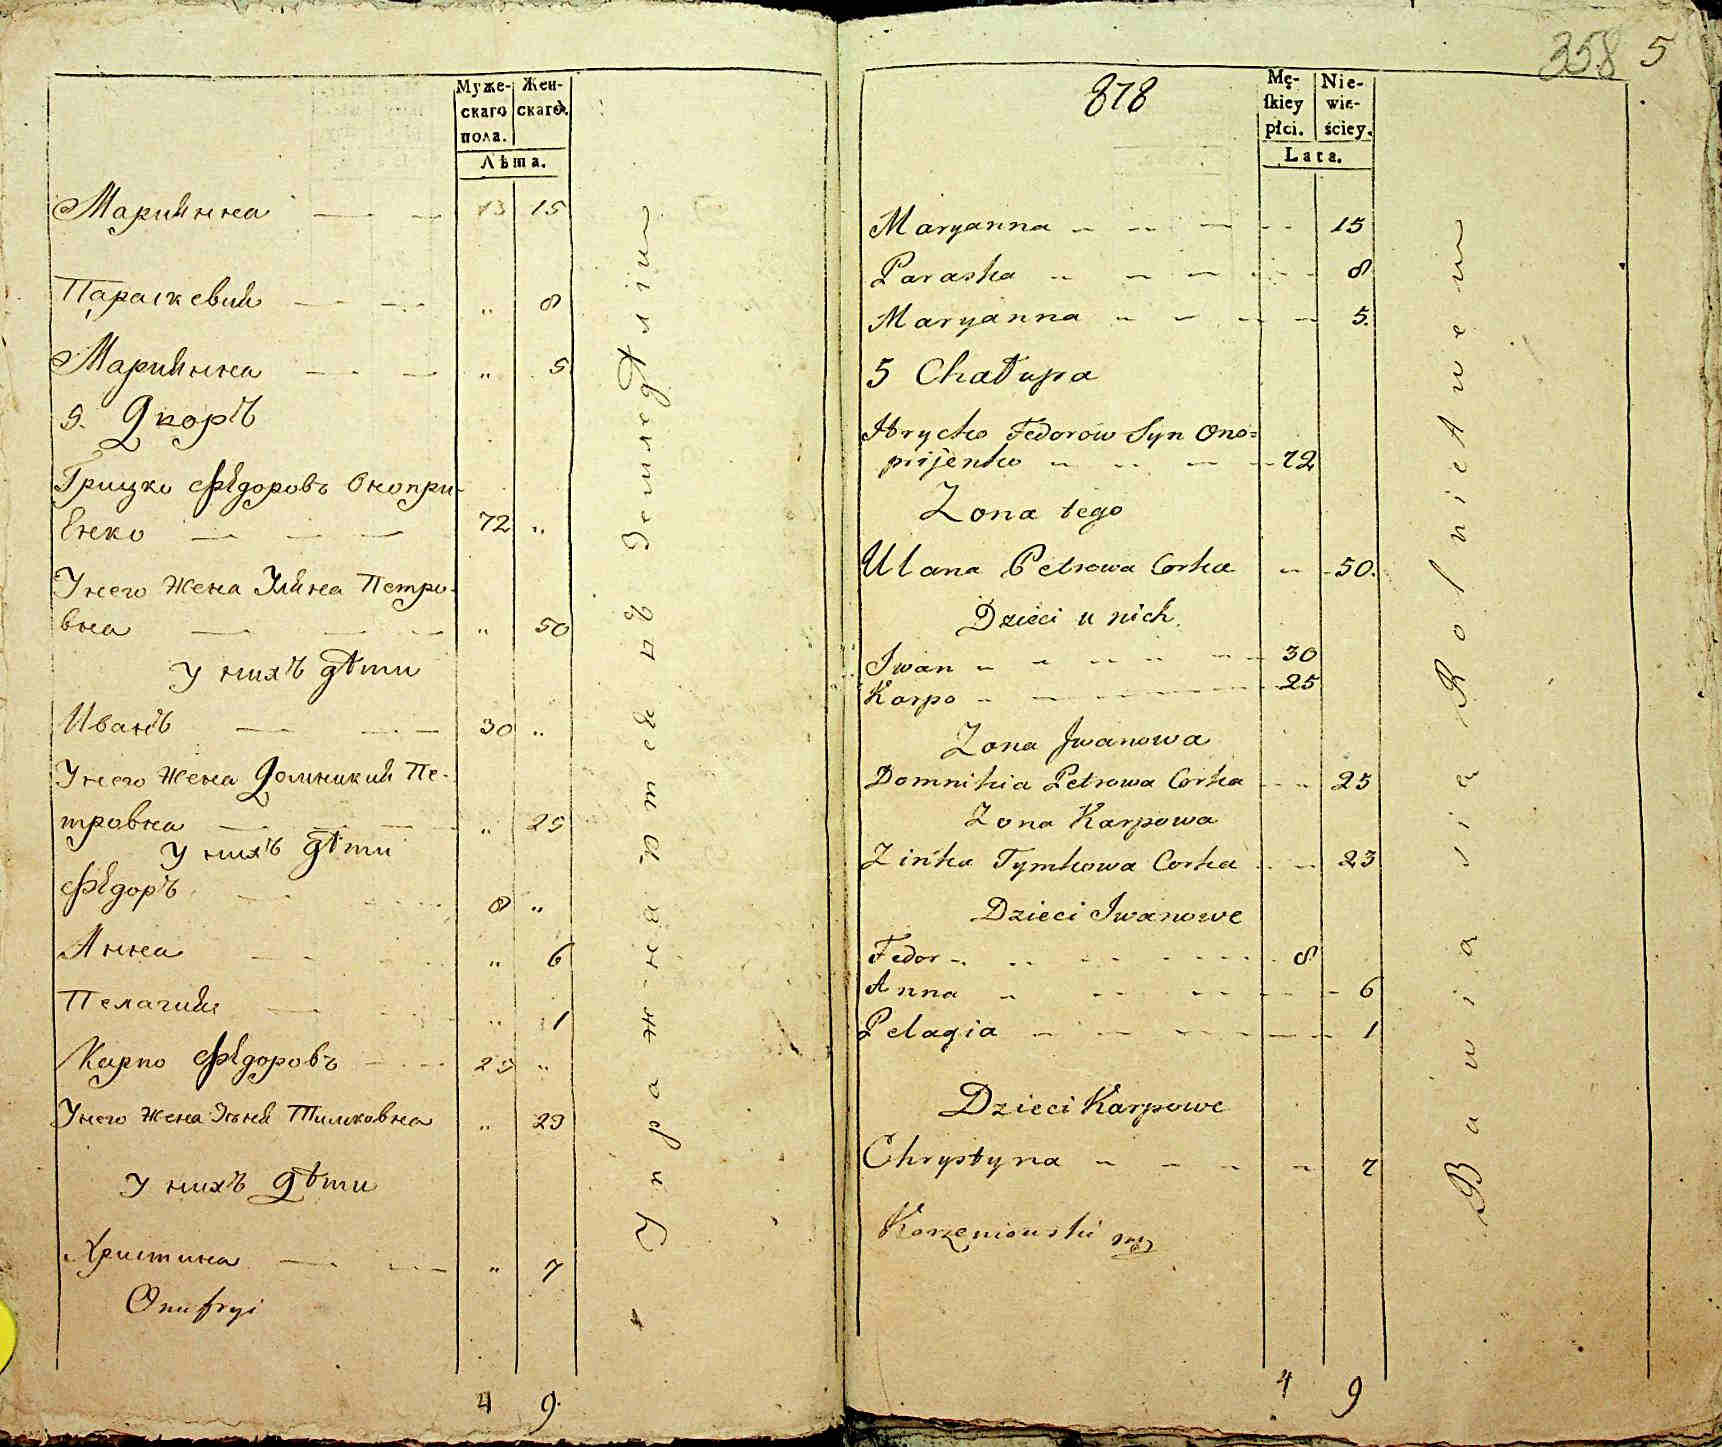 Муже-
скаго
пола.
Жен-
скаго.
Лѣта.
Мариянна 13 15
Параскевия „ 8
Мариянна „ 5
5. Дворъ
Грицко Фёдоровъ Онопри-
енко 72 „
У него жена Уляна Петро-
вна „ 50
У нихъ дѣти
Иванъ 30 „
У него жена Домникия Пе-
тровна „ 25
У нихъ дѣти
Фёдоръ 8 „
Анна „ 6
Пелагия „ 1
Карпо Фёдоровъ 25 „
У него жена Тимковна „ 23
У нихъ дѣти
Христина „ 7
Onufryi
4 9
Упражняются въ земледѣліи
358 5
878
Mę-
skiey
płci.
Nie-
wie-
ściey.
Lata.
Maryanna 15
Paraska 8
Maryanna 5.
5 Chałupa
Hrycko Fedorow Syn Ono=
prijenko 72
Zona tego
Ulana Petrowa Corka 50.
Dzieci u nich
Iwan 30
Karpo 25
Zona Jwanowa
Domnikia Petrowa Corka 25
Zona Karpowa
Zinka Tymkowa Corka 23
Dzieci Iwanowe
Fedor 8
Anna 6
Pelagia 1
Dzieci Karpowe
Chrystyna 7
Korzeniowski
4 9
Bawia sia Rolnictwem